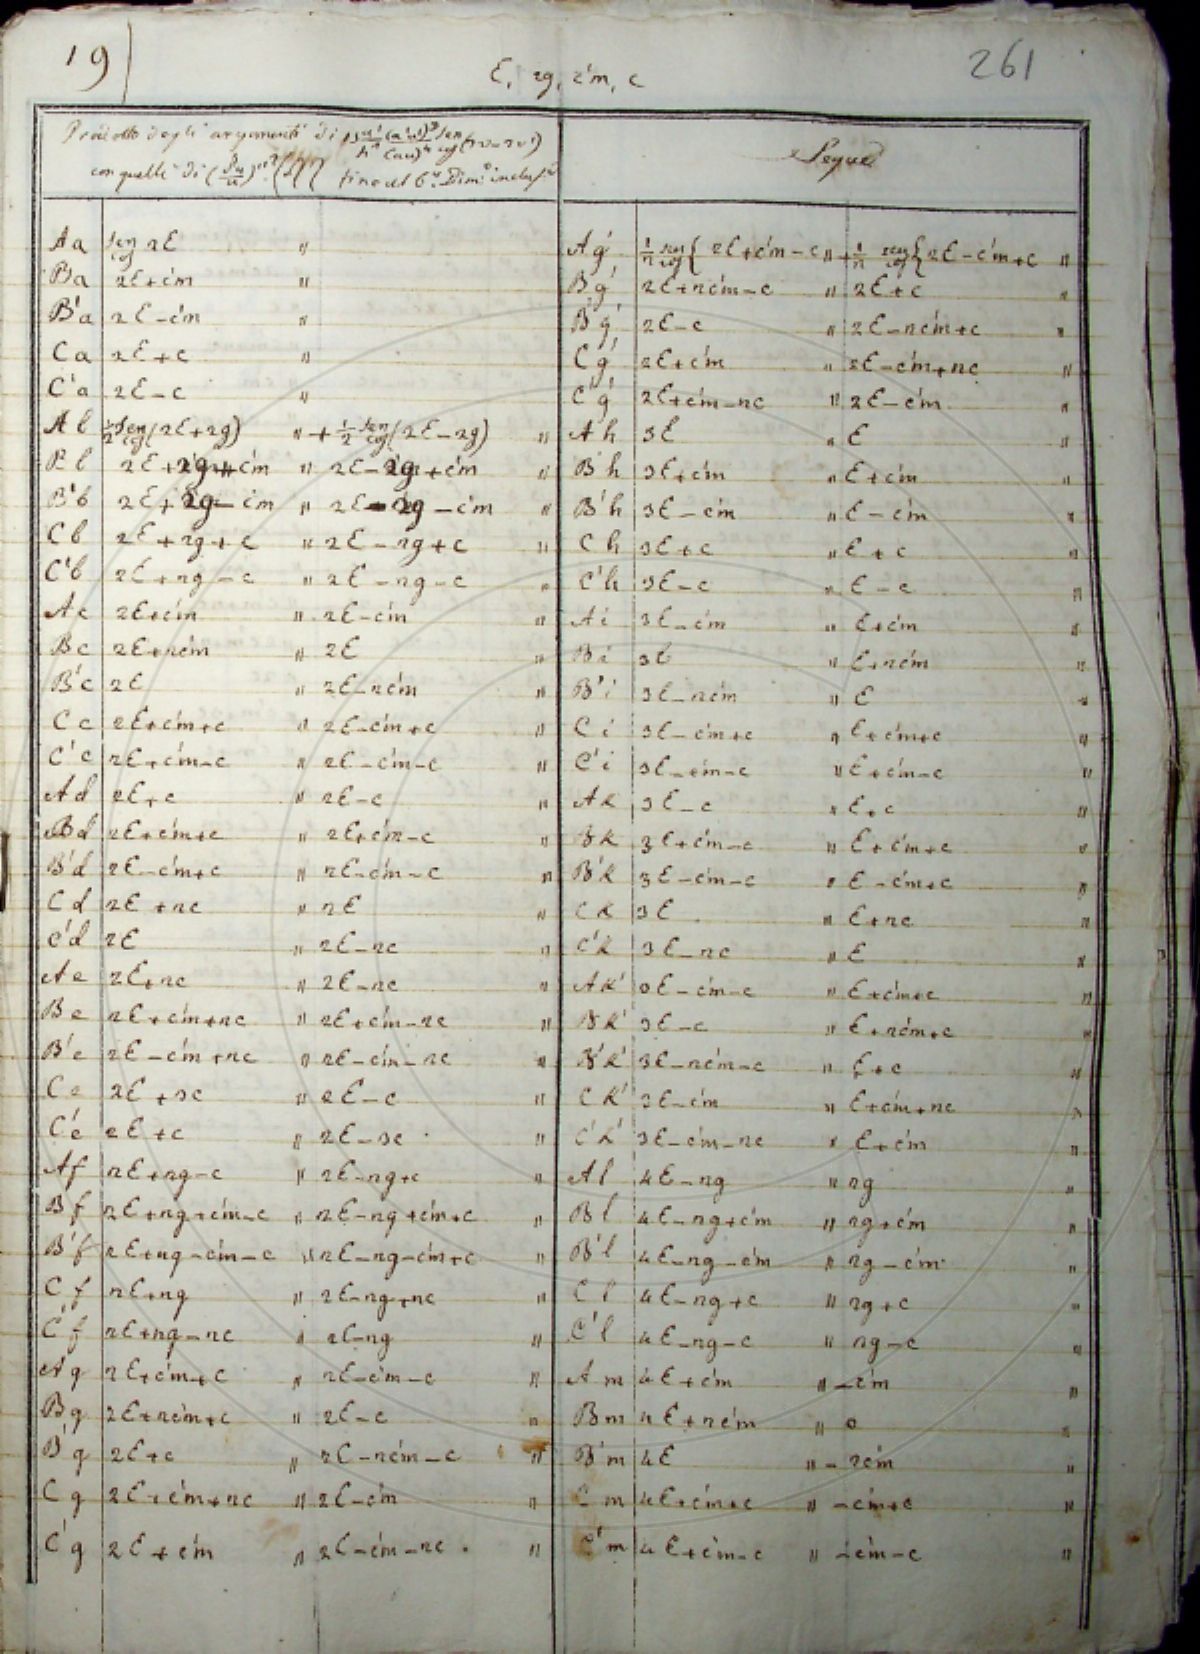 19 261
E, 2g, c'm, c
Prodotto degli argomenti di
con quelli di fino al 6.° Dim.e inclus.e
Segue
Aa sen cos 2E "
Ba 2E+c'm "
B'a 2E-c'm "
Ca 2E+c "
C'a 2E-c "
Ab ½ sen cos (2E+2g) " + ½ sen cos (2E-2g) "
Bb 2E+2g+c'm " 2E-2g+c'm "
B'b 2E+2g-c'm " 2E-2g-c'm "
Cb 2E+2g+c " 2E-2g+c "
C'b 2E+2g-c " 2E-2g-c "
Ac 2E+c'm " 2E-c'm "
Bc 2E+2c'm " 2E "
B'c 2E " 2E-2c'm "
Cc 2E+c'm+c " 2E-c'm+c "
C'c 2E+c'm-c " 2E-c'm-c "
Ad 2E+c " 2E-c "
Bd 2E+c'm+c " 2E+c'm-c "
B'd 2E-c'm+c " 2E-c'm-c "
Cd 2E+2c " 2E "
C'd 2E " 2E-2c "
Ae 2E+2c " 2E-2c "
Be 2E+c'm+2c " 2E+c'm-2c "
B'e 2E-c'm+2c " 2E-c'm-2c "
Ce 2E+3c " 2E-c "
C'e 2E+c " 2E-3c "
Af 2E+2g-c " 2E-2g+c "
Bf 2E+2g+c'm-c " 2E-2g+c'm+c "
B'f 2E+2g-c'm-c " 2E-2g-c'm+c "
Cf 2E+2g " 2E-2g+2c "
C'f 2E+2g-2c " 2E-2g "
Ag 2E+c'm+c " 2E-c'm-c "
Bg 2E+2c'm+c " 2E-c "
B'g 2E+c " 2E-2c'm-c "
Cg 2E+c'm+2c " 2E-c'm "
C'g 2E+c'm " 2E-c'm-2c "
Ag' ½ sen cos { 2E+c'm-c " + ½ sen cos { 2E-c'm+c "
Bg' 2E+2c'm-c " 2E+c "
B'g' 2E-c " 2E-2c'm+c "
Cg' 2E+c'm " 2E-c'm+2c "
C'g' 2E+c'm-2c " 2E-c'm "
Ah 3E " E "
Bh 3E+c'm " E+c'm "
B'h 3E-c'm " E-c'm "
Ch 3E+c " E+c "
C'h 3E-c " E-c "
Ai 3E-c'm " E+c'm "
Bi 3E " E+2c'm "
B'i 3E-2c'm " E "
Ci 3E-c'm+c " E+c'm+c "
C'i 3E-c'm-c " E+c'm-c "
Ak 3E-c " E+c "
Bk 3E+c'm-c " E+c'm+c "
B'k 3E-c'm-c " E-c'm+c "
Ck 3E " E+2c "
C'k 3E-2c " E "
Ak' 3E-c'm-c " E+c'm+c "
Bk' 3E-c " E+2c'm+c "
B'k' 3E-2c'm-c " E+c "
Ck' 3E-c'm " E+c'm+2c "
C'k' 3E-c'm-2c " E+c'm "
Al 4E-2g " 2g "
Bl 4E-2g+c'm " 2g+c'm "
B'l 4E-2g-c'm " 2g-c'm "
Cl 4E-2g+c " 2g+c "
C'l 4E-2g-c " 2g-c "
Am 4E+c'm " -c'm "
Bm 4E+2c'm " 0 "
B'm 4E " -2c'm "
Cm 4E+c'm+c " -c'm+c "
C'm 4E+c'm-c " -c'm-c "